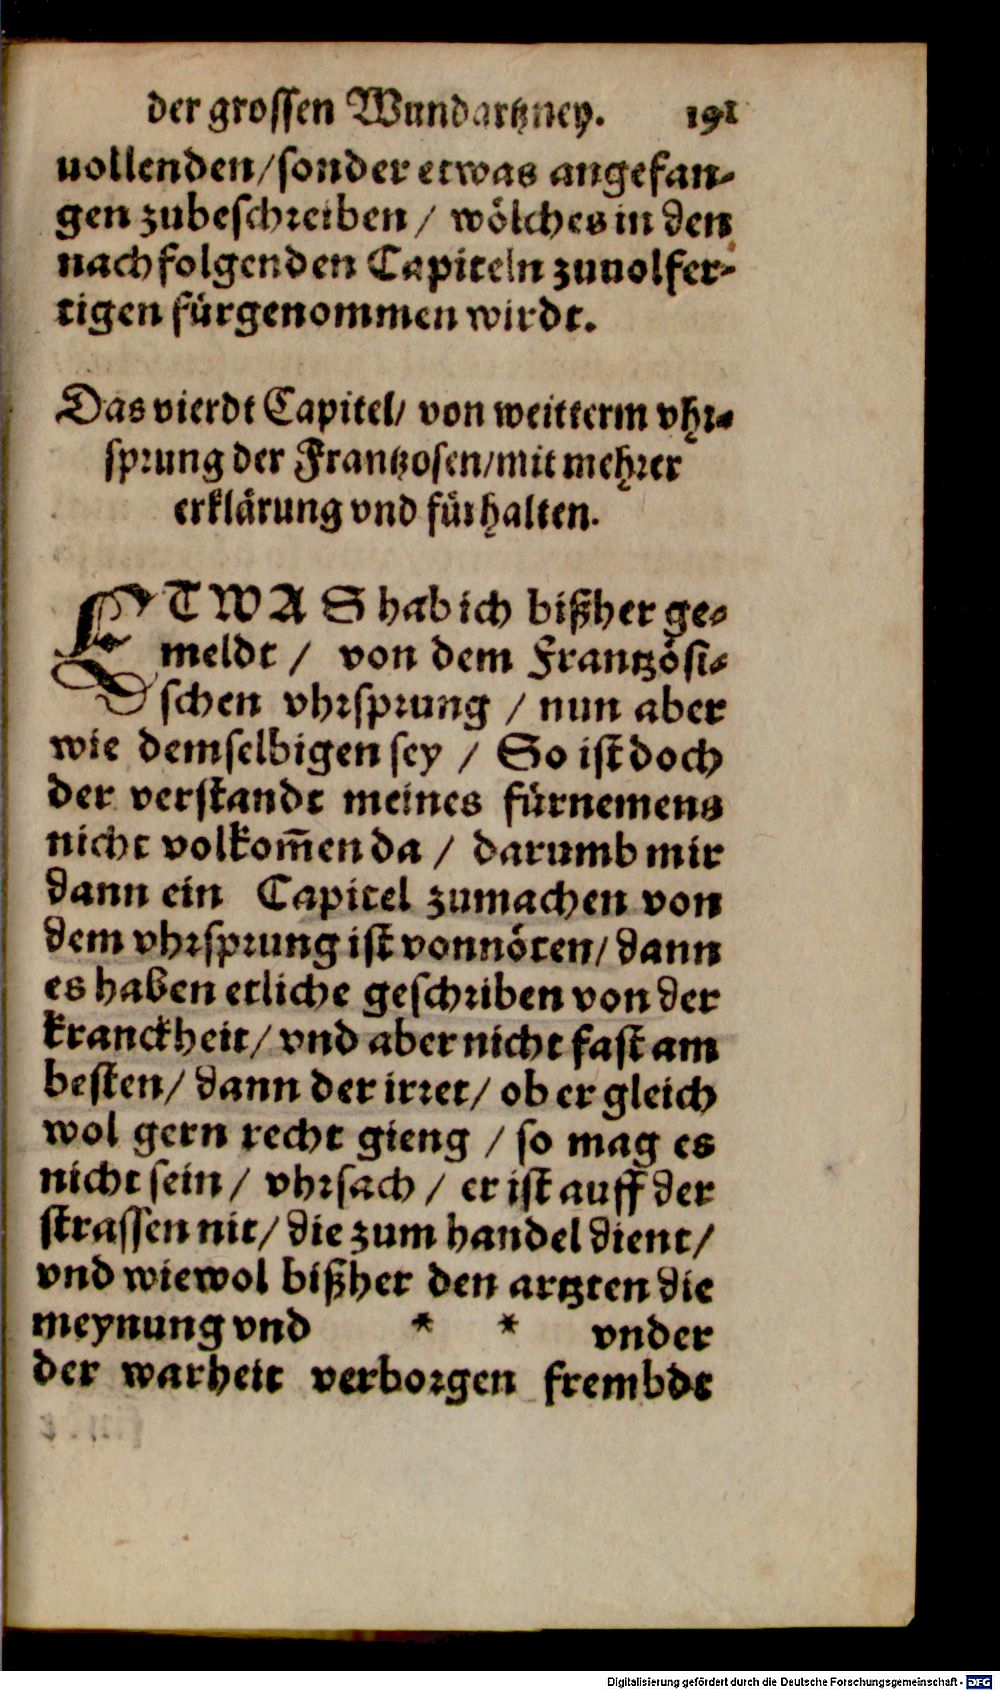 der grossen Wundartzney. 191
uollenden/sonder etwas angefan-
gen zubeschreiben / wölches in den
nachfolgenden Capiteln zuuolfer-
tigen fürgenommen wirdt.
Das vierdt Capitel/ von weitterm vhr-
sprung der Frantzosen/mit mehrer
erklärung vnd fürhalten.
ETWAS hab ich bißher ge-
meldt / von dem Frantzösi-
schen vhrsprung / nun aber
wie demselbigen sey / So ist doch
der verstandt meines fürnemens
nicht volkom̄en da / darumb mir
dann ein Capitel zumachen von
dem vhrsprung ist vonnöten/ dann
es haben etliche geschriben von der
kranckheit/ vnd aber nicht fast am
besten/ dann der irret/ ob er gleich
wol gern recht gieng / so mag es
nicht sein / vhrsach / er ist auff der
strassen nit/ die zum handel dient/
vnd wiewol bißher den artzten die
meynung vnd * * vnder
der warheit verborgen frembdt
Digitalisierung gefördert durch die Deutsche Forschungsgemeinschaft - DFG